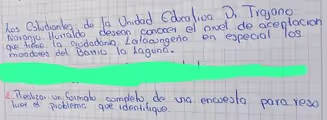 Los Estudiantes de la Unidad Educativa Dr Trajano
Naranjo Iturralde desean conocer el nivel de aceptacion
que tiene la ciudadania Latacungeña en especial los
moradores del Barrio la Laguna.
2. Realizar un formato completo de una encuesta para reso
lver el problema que identifique.